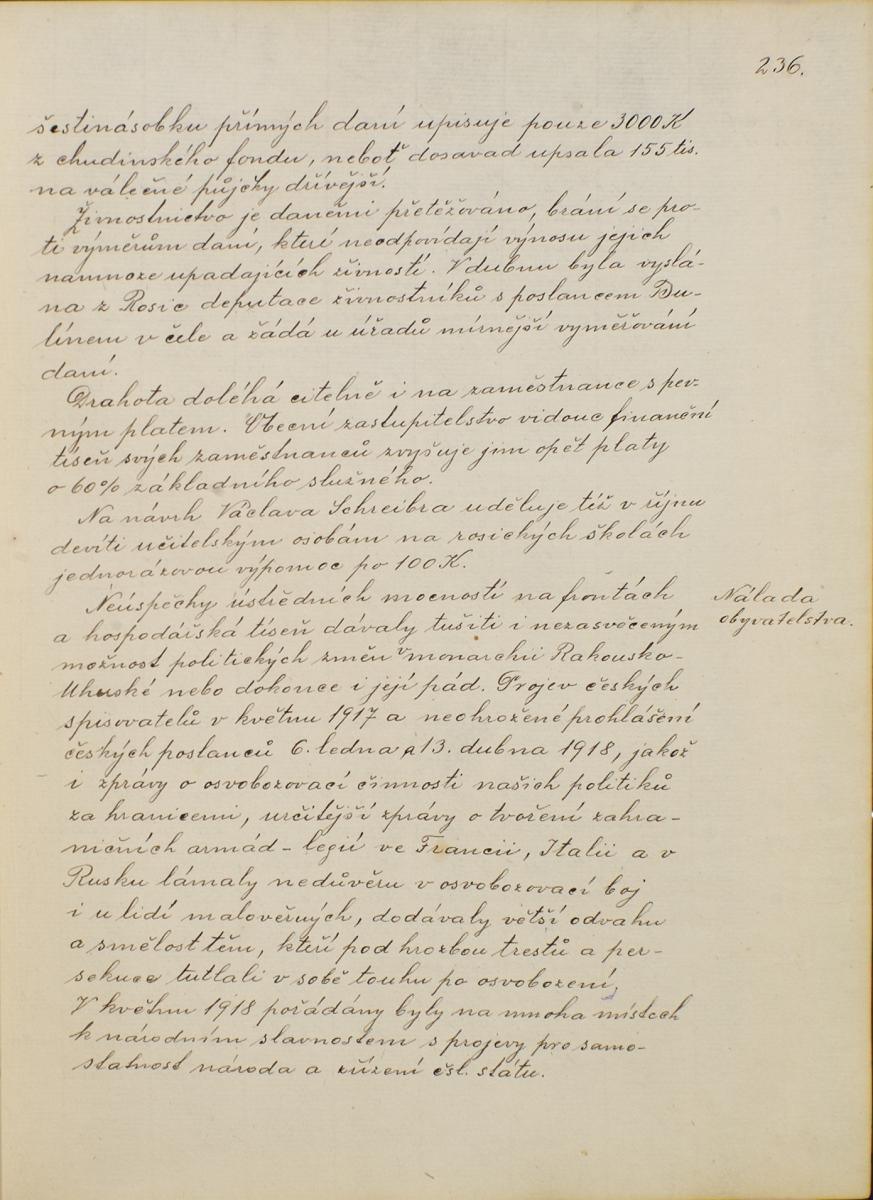 236.
šestinásobku přímých daní upisuje pouze 3000 K
z chudinského fondu, neboť dosavad upsala 155 tis.
na válečné půjčky dřívější.
Živnostnictvo je daněmi přetěžováno, brání se pro-
ti výměrům daní, kteří neodpovídají výnosu jejich
namnoze upadajících živností. V dubnu byla vyslá-
na z Rosic deputace živnostníků s poslancem Bu-
línem v čele a žádá u úřadů mírnější vyměřování
daní.
Drahota doléhá citelně i na zaměstnance s pev-
ným platem. Obecní zastupitelstvo vidouc finanční
tíseň svých zaměstnanců zvyšuje jim opět platy
o 60% základního služného.
Na návrh Václava Schreibra uděluje též v říjnu
devíti učitelským osobám na rosických školách
jednorázovou výpomoc po 100 K.
Neúspěchy ústředních mocností na frontách
a hospodářská tíseň dávaly tušiti i nezasvěceným
možnost politických změn v monarchii Rakousko-
Uhuské nebo dokonce i její pád. Projev českých
spisovatelů v květnu 1917 a neohrožené prohlášení
českých poslanců 6. ledna a 13. dubna 1918, jakož
i zprávy o osvobozovací činnosti našich politiků
za hranicemi, určitější zprávy o tvoření zahra-
ničních armád - legií ve Francii, Italii a v
Rusku lámaly nedůvěru v osvobozovací boj
i u lidí malověrných, dodávaly větší odvahu
a smělost těm, kteří pod hrozbou trestů a per-
sekuce tutlali v sobě touhu po osvobození,
V květnu 1918 pořádány byly na mnoha místech
k národním slavnostem s projevy pro samo-
statnost národa a zřízení čsl. státu.
Nálada
obyvatelstva.